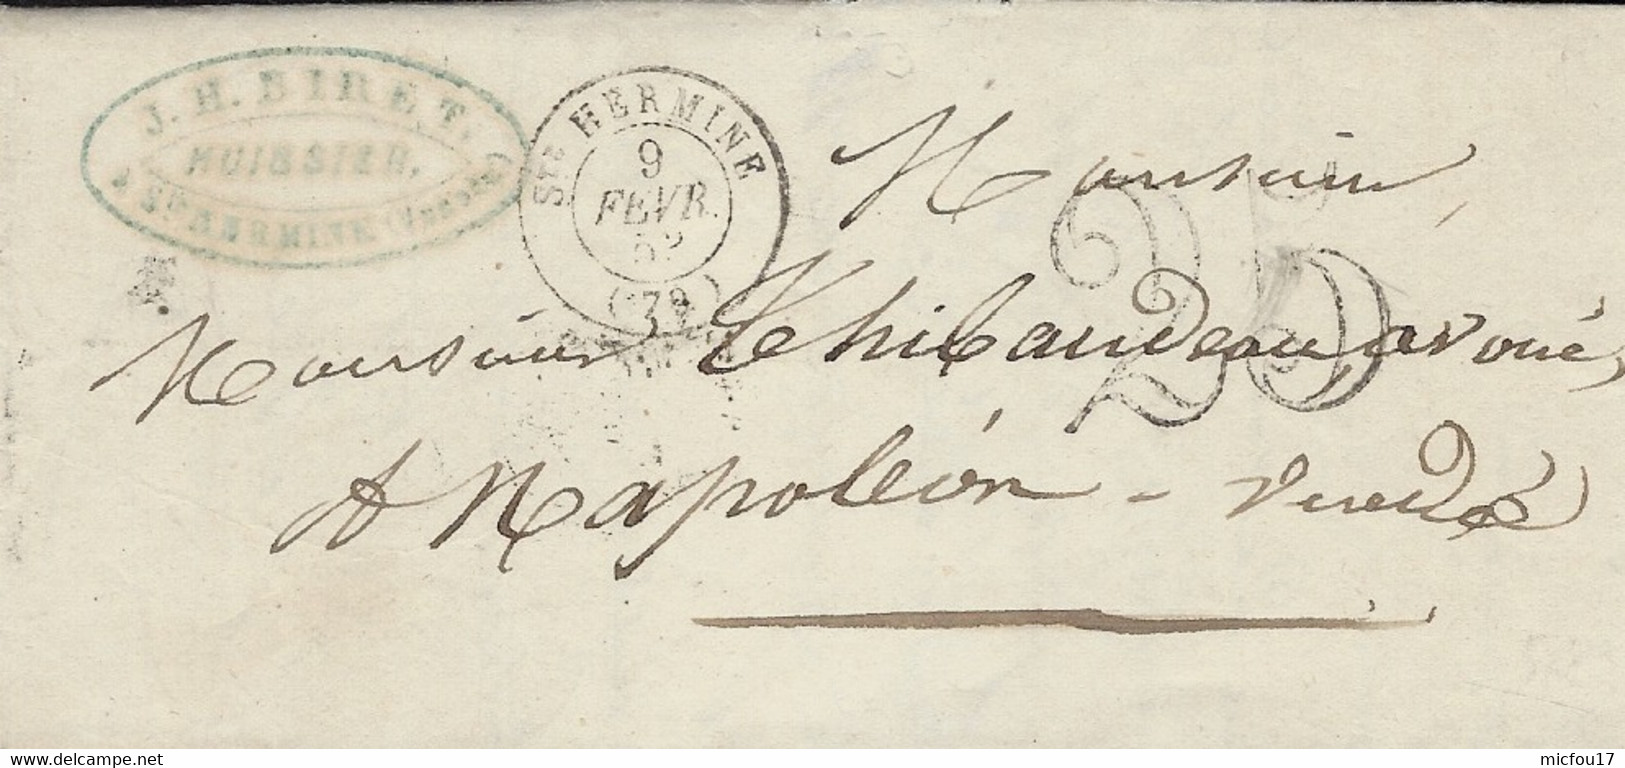 J. H. BIRET.
HUISSIER,
à Ste HERMINE (Vendée)
Ste HERMINE
9
FEVR.
(79)
25
Monsieur,
Monsieur Thibaudeau, avoué,
A Napoléon - Vendée
delcampe.net
micfou17